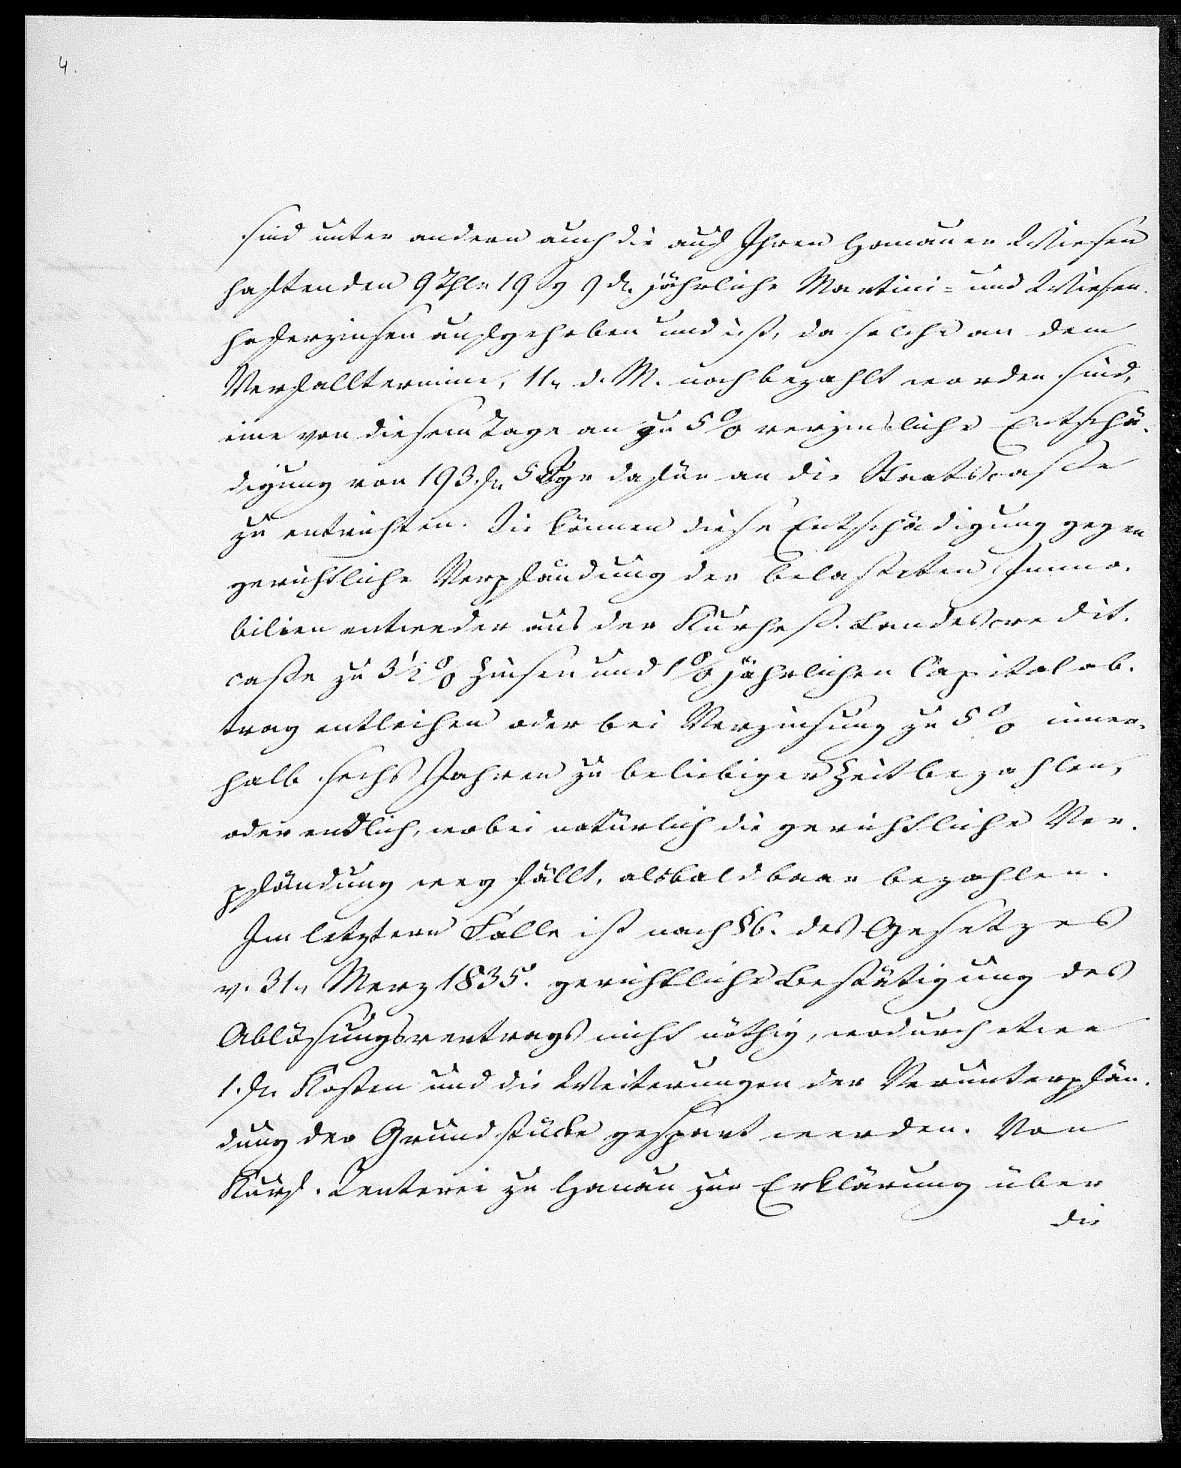 4.
sind unter andern auch die auf Ihren Hanauer Wiesen
haftenden 9 Thlr 19 Sg 9 dl. jährliche Martini- und Wiesen-
haferzinsen aufgehoben und ist, da solche an dem
Verfalltermine, 11n d. M. noch bezahlt worden sind,
eine von diesem Tage an zu 5% verzinsliche Entschä-
digung von 193. 5 Sgr dafür an die Staatscasse
zu entrichten. Sie können diese Entschädigung gegen
gerichtliche Verpfändung der belasteten Immo-
bilien entweder aus der Kurhess. Landescredit-
casse zu 3½% Zinsen und 1% jährlichen Capitalab-
trag entleihen oder bei Verzinsung zu 5% inner-
halb sechs Jahren zu beliebiger Zeit bezahlen,
oder endlich, wobei natürlich die gerichtliche Ver-
pfändung weg fällt, alsbald baar bezahlen.
Im letztern Falle ist nach § 6. des Gesetzes
v. 31n Merz 1835. gerichtliche Bestätigung des
Ablösungsvertrags nicht nöthig, wodurch etwa
1. Kosten und die Weiterungen der Verunterpfän-
dung der Grundstücke gespart werden. Von
Kurf. Renterei zu Hanau zur Erklärung über
die